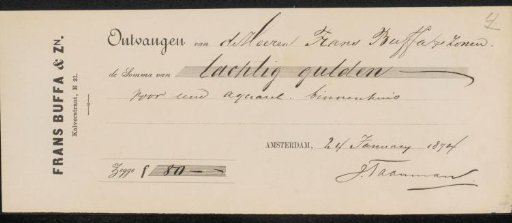 4
FRANS BUFFA & ZN.
Kalverstraat, K 21.
Ontvangen van de Heeren Frans Buffa & Zonen.
de Somma van tachtig gulden
voor eene aquarel. binnenhuis
AMSTERDAM, 24 January 1874
Zegge f 80 —
J. Taanman